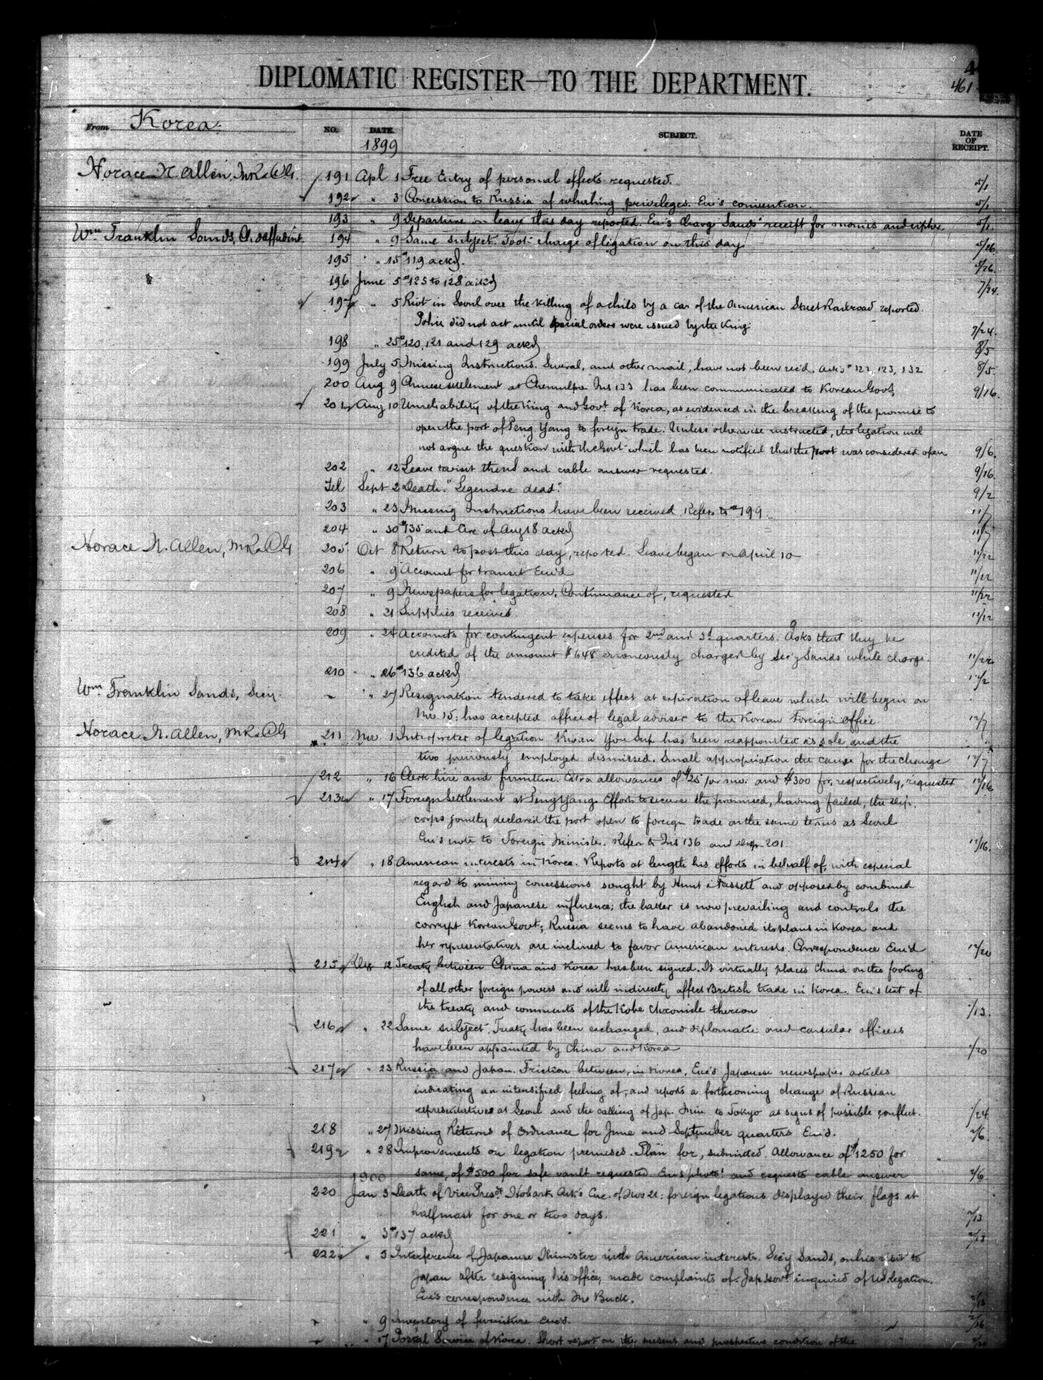 461
DIPLOMATIC REGISTER—TO THE DEPARTMENT.
From Korea. NO. DATE. SUBJECT. DATE OF RECEIPT.
1899
Horace N. Allen, MR&CG. 191 Apl 1 Free Entry of personal effects requested. 5/1
192 " 3 Concession to Russia of whaling privileges. Enc's convention. 5/1
193 " 9 Departure on leave this day reported. Enc's Chargé Sands' receipt for monies and cipher. 5/1
Wm Franklin Sands, Ch. d'affaires. 194 " 9 Same subject. Took charge of legation on this day 5/16
195 " 15 " 119 ackd. 5/26
196 June 5 " 125 to 128 ackd 7/24
197 " 5 Riot in Seoul over the killing of a child by a car of the American Street Railroad reported.
Police did not act until special orders were issued by the King. 7/24.
198 " 25 " 120, 121 and 129 ackd 8/5
199 July 5 Missing Instructions. Several, and other mail, have not been rec'd. Acks # 122, 123, 132 8/5.
200 Aug 9 Chinese settlement at Chemulpo. Ins 133 has been communicated to Korean Govt 9/16.
201 Aug 10 Unreliability of the King and Govt of Korea, as evidenced in the breaking of the promise to
open the port of Peng Yang to foreign trade. Unless otherwise instructed, the legation will
not argue the question with the Govt which has been notified that the port was considered open 9/6.
202 " 12 Leave to visit the US and cable answer requested. 9/16
Tel Sept 2 Death. "Legendre dead." 9/2
203 " 23 Missing Instructions have been received. Refers to # 199. 11/7
204 " 30 # 135 and Circ of Aug 18 ackd 11/7
Horace N. Allen, MR&CG 205 Oct 8 Return to post this day, reported. Leave began on April 10 11/22
206 " 9 Account for transit Enc'd 11/22
207 " 9 Newspapers for legation. Continuance of, requested 11/22
208 " 21 Supplies received. 11/22
209 " 24 Accounts for contingent expenses for 2nd and 3d quarters. Asks that they be
credited of the amount $6.48 erroneously charged by Sec'y Sands while charge. 11/22
210 " 26 # 136 ackd 12/2
Wm Franklin Sands, Secy. " 27 Resignation tendered to take effect at expiration of leave which will begin on
Nov 15; has accepted office of legal adviser to the Korean Foreign Office 12/7
Horace N. Allen, MR&CG 211 Nov 1 Interpreter of legation has been reappointed as sole and the
two previously employed dismissed. Small appropriation the cause for the change 12/7
212 " 16 Clerk hire and furniture. Extra allowances of $25 per mo. and $300 for, respectively, requested 12/16
213 " 17 Foreign Settlement at Peng Yang. Efforts to secure the promised, having failed, the dip.
corps jointly declared the port open to foreign trade on the same terms as Seoul
Enc's note to Foreign Minister. Refer to Ins 136 and Desp. 201. 12/16.
214 " 18 American interests in Korea. Reports at length his efforts in behalf of, with especial
regard to mining concessions sought by Hunt & Fassett and opposed by combined
English and Japanese influence; the latter is now prevailing and controls the
corrupt Korean Govt; Russia seems to have abandoned its plans in Korea and
her representatives are inclined to favor American interests. Correspondence Enc'd 12/20
215 Dec 12 Treaty between China and Korea has been signed. It virtually places China on the footing
of all other foreign powers and will indirectly affect British trade in Korea. Enc's text of
the treaty and comments of the Kobe Chronicle thereon 1/13.
216 " 22 Same subject. Treaty has been exchanged, and diplomatic and consular officers
have been appointed by China and Korea 1/20
217 " 23 Russia and Japan. Friction between, in Korea, Enc's Japanese newspaper articles
indicating an intensified feeling of, and reports a forthcoming change of Russian
representatives at Seoul and the calling of Jap. Min to Tokyo as signs of possible conflict. 1/24
218 " 27 Missing Returns of Ordnance for June and September quarters Enc'd. 2/6
219 " 28 Improvements on legation premises. Plan for, submitted. Allowance of $1250 for
same, of $500 for safe vault requested. Enc's photo' and requests cable answer 2/6
1900
220 Jan 3 Death of Vice Prest Hobart. Acks Circ. of Nov 22. foreign legations displayed their flags at
half mast for one or two days. 2/13
221 " 3 # 137 ackd 2/13
222 " 5 Interference of Japanese Minister with American interests. Sec'y Sands, on his visit to
Japan after resigning his office, made complaints of. Jap. Govt inquired of US legation.
Enc's correspondence with Mr Buck. 2/13
" 9 Inventory of furniture Enc'd. 2/16
" 17 Postal Service of Korea. Short report on the present and prospective condition of the